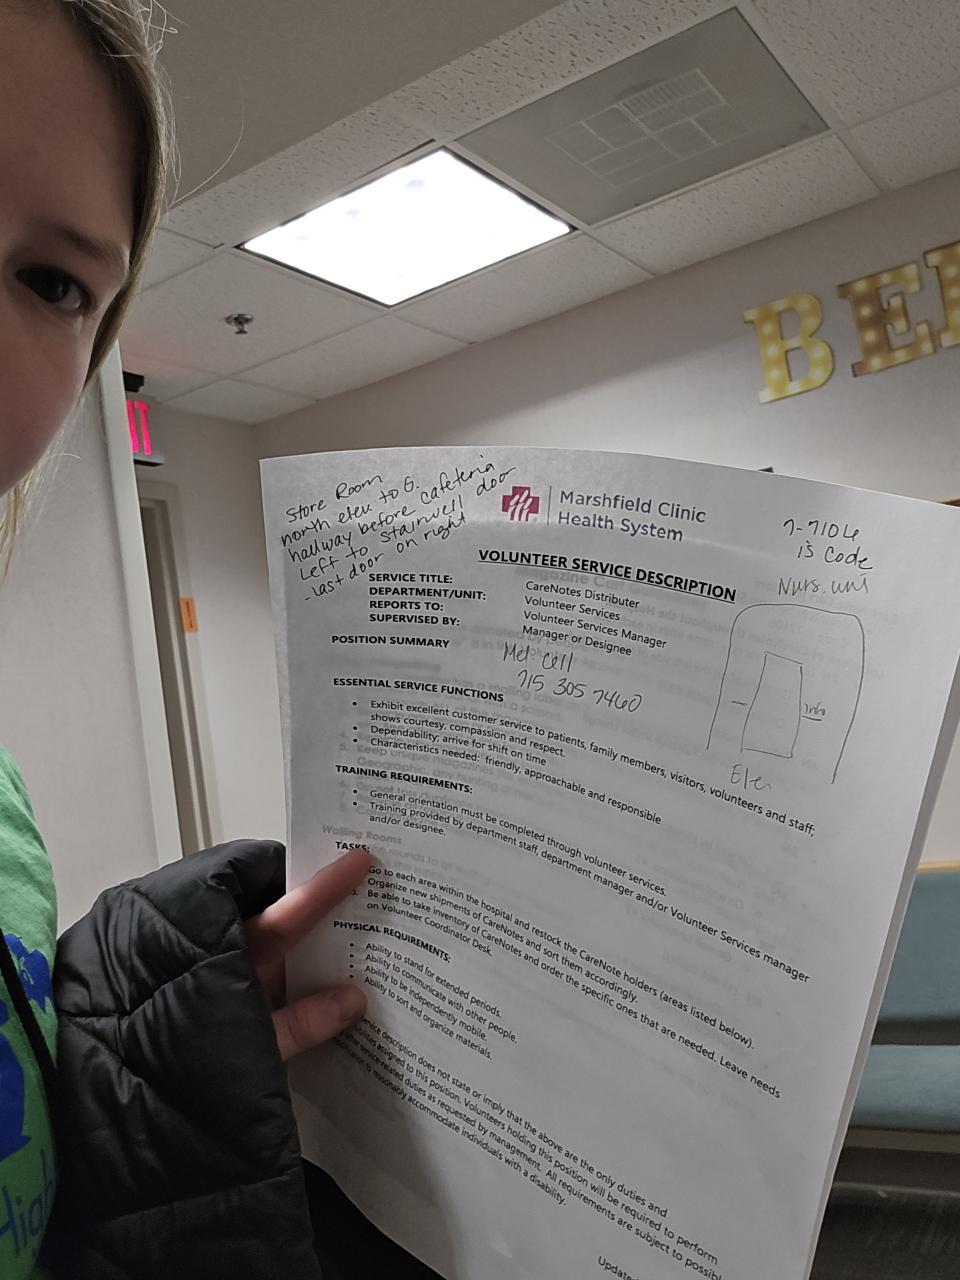 BE
IT
Store Room
north elev to G.
hallway before cafeteria
Left to stairwell door
- last door on right
Marshfield Clinic
Health System
7-7104
is code
Nurs. unit
VOLUNTEER SERVICE DESCRIPTION
SERVICE TITLE: CareNotes Distributer
DEPARTMENT/UNIT: Volunteer Services
REPORTS TO: Volunteer Services Manager
SUPERVISED BY: Manager or Designee
POSITION SUMMARY
Mel cell
715 305 7460
Info
Elev
ESSENTIAL SERVICE FUNCTIONS
• Exhibit excellent customer service to patients, family members, visitors, volunteers and staff,
shows courtesy, compassion and respect.
• Dependability; arrive for shift on time
• Characteristics needed: friendly, approachable and responsible
TRAINING REQUIREMENTS:
• General orientation must be completed through volunteer services.
• Training provided by department staff, department manager and/or Volunteer Services manager
and/or designee.
Waiting Rooms
TASKS:
Go to each area within the hospital and restock the CareNote holders (areas listed below).
Organize new shipments of CareNotes and sort them accordingly.
3. Be able to take inventory of CareNotes and order the specific ones that are needed. Leave needs
on Volunteer Coordinator Desk.
PHYSICAL REQUIREMENTS:
• Ability to stand for extended periods.
• Ability to communicate with other people.
• Ability to be independently mobile.
• Ability to sort and organize materials.
service description does not state or imply that the above are the only duties and
assigned to this position. Volunteers holding this position will be required to perform
service-related duties as requested by management. All requirements are subject to possibl
to reasonably accommodate individuals with a disability.
Update
High